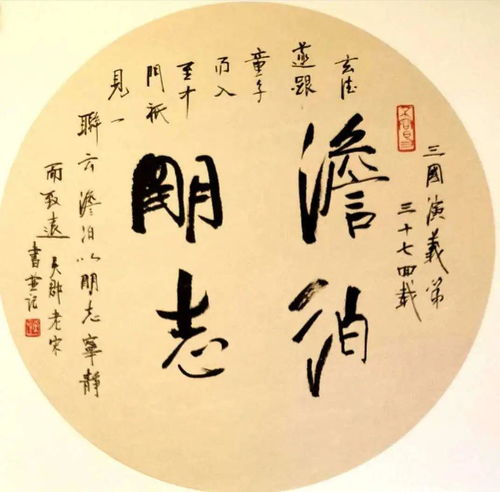 三國演義第
三十七回載
澹泊
明志
玄德
遂跟
童子
而入
至中
門祇
見一
聯云澹泊以明志寧靜
而致遠 老宋
書並記